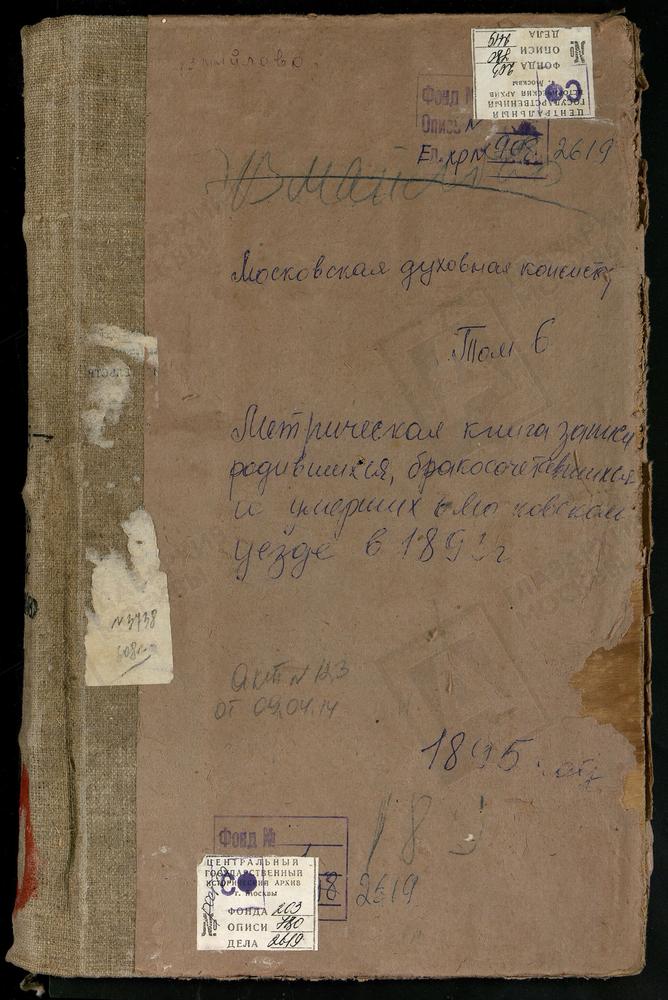 Измайлово
ЦЕНТРАЛЬНЫЙ
ГОСУДАРСТВЕННЫЙ
ИСТОРИЧЕСКИЙ АРХИВ
г. Москвы
ФОНДА 203
ОПИСИ 780
ДЕЛА 2619
Фонд №
Опись №
Ед. хр. № 908 2619
Измайлово
Московская духовная консист
Том 6
Метрическая книга записи
родившихся, бракосочетавшихся
и умерших в Московском
уезде в 189 г
№ 3738
608
акт № 123
от 09.04.14
1895
18
Фонд №
2619
ЦЕНТРАЛЬНЫЙ
ГОСУДАРСТВЕННЫЙ
ИСТОРИЧЕСКИЙ АРХИВ
г. Москвы
ФОНДА 203
ОПИСИ 780
ДЕЛА 2619